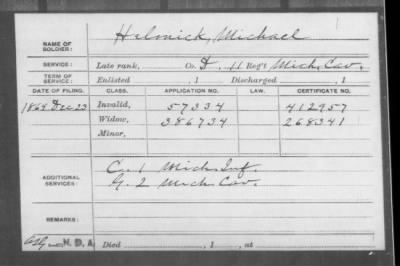 NAME OF SOLDIER: Helmick, Michael
SERVICE: Late rank, Co. D, 11 Reg't Mich. Cav.
TERM OF SERVICE: Enlisted , 1 Discharged , 1
DATE OF FILING. CLASS. APPLICATION NO. LAW. CERTIFICATE NO.
1864 Dec 23 Invalid, 57334 412957
Widow, 386734 268341
Minor,
ADDITIONAL SERVICES: C. 1 Mich Inf.
G. 2 Mich Cav.
REMARKS:
N. D. A. Died , 1 , at